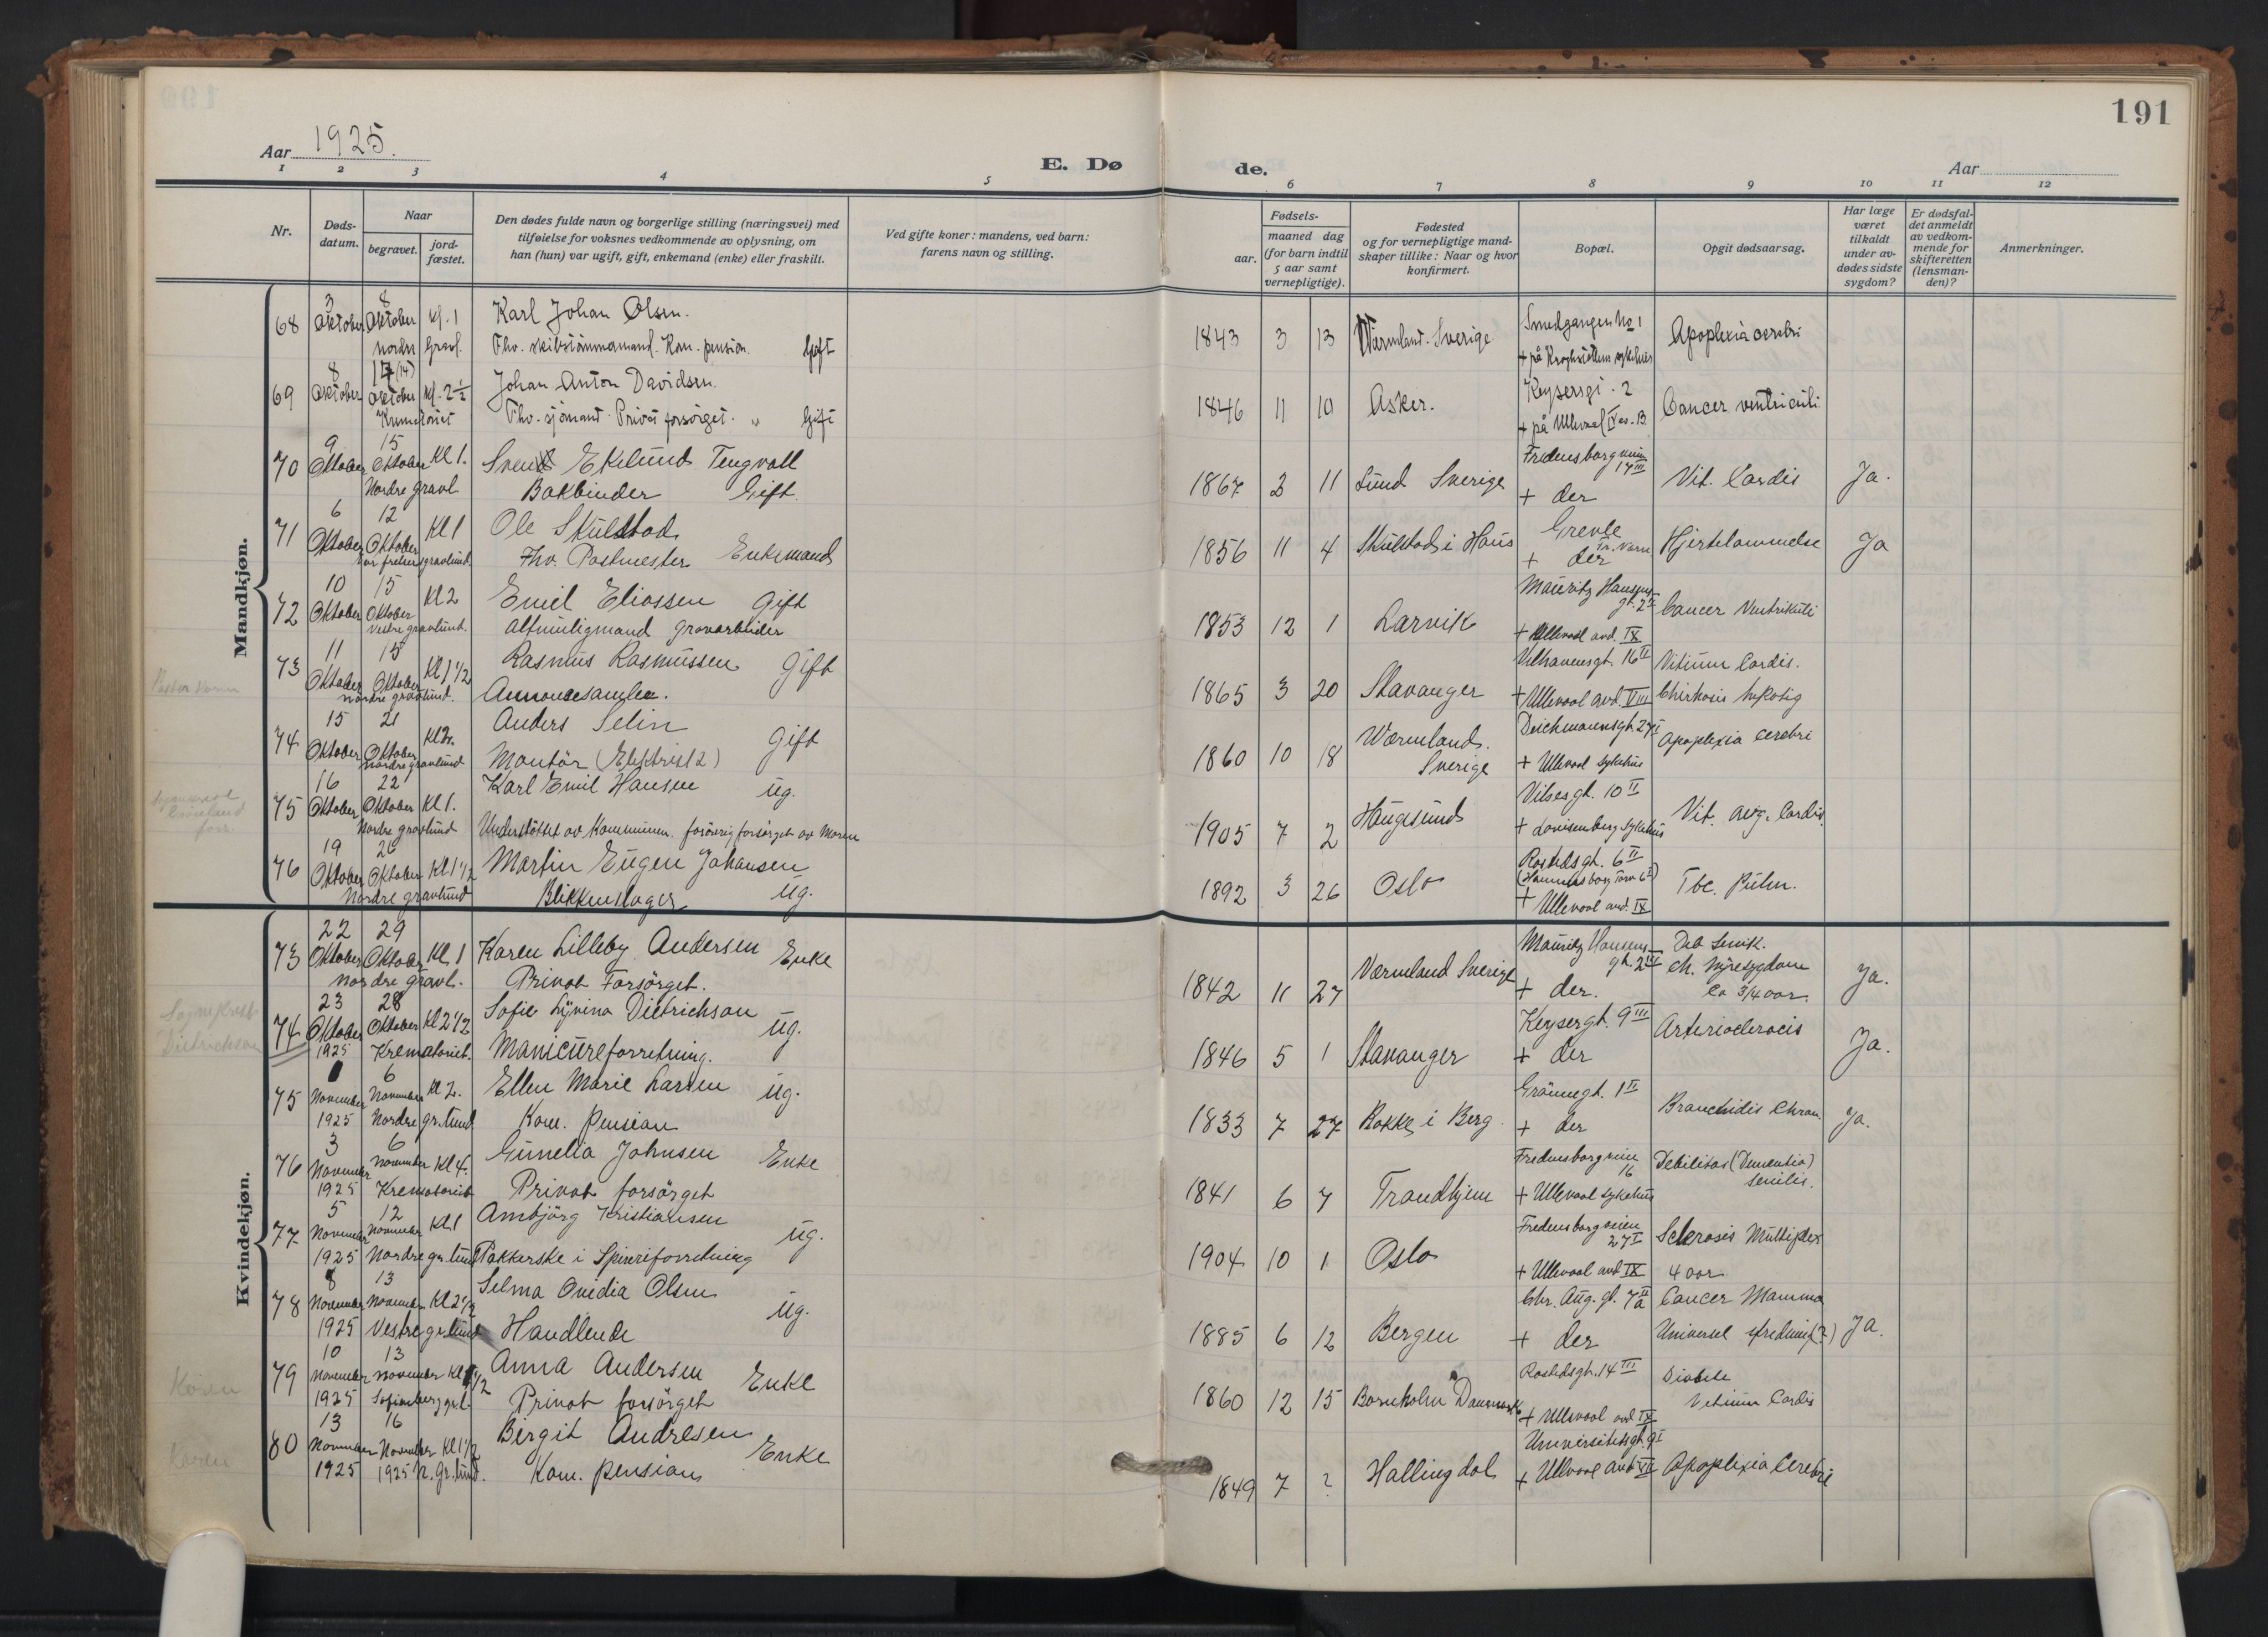 191
Aar 1925.
E. Døde.
Aar
1 2 3 4 5 6 7 8 9 10 11 12
Nr.
Døds-datum.
Naar
begravet.
jord-fæstet.
Den dødes fulde navn og borgerlige stilling (næringsvei) med
tilføielse for voksnes vedkommende av oplysning, om
han (hun) var ugift, gift, enkemand (enke) eller fraskilt.
Ved gifte koner: mandens, ved barn:
farens navn og stilling.
Fødsels-
aar.
maaned dag
(for barn indtil
5 aar samt
vernepligtige).
Fødested
og for vernepligtige mand-
skaper tillike: Naar og hvor
konfirmert.
Bopæl.
Opgit dødsaarsag.
Har læge
været
tilkaldt
under av-
dødes sidste
sygdom?
Er dødsfal-
det anmeldt
av vedkom-
mende for
skifteretten
(lensman-
den)?
Anmerkninger.
Mandkjøn.
3 8
68 Oktober Oktober Kl. 1 Karl Johan Olsen.
nordre Gravl. Fhv. skibstömmermand. Kom. pension. Gift
1843 3 13 Wärmland. Sverige. Smedgangen No 1 Apoplexia cerebri
8 17 (14)
69 Oktober Oktober Kl. 2½ Johan Anton Davidsen.
Krematoriet Fhv. sjömand. Privat forsörget. Gift
1846 11 10 Asker. Keysersgt. 2 Cancer ventriculi
9 15
70 Oktober Oktober Kl 1. Svend Ekelund Tengvall
Nordre gravl Bokbinder Gift.
1867 2 11 Lund Sverige Fredensborgveien 17 III + der Vit. Cordis Ja.
6 12
71 Oktober Oktober Kl 1 Ole Skulstad
Vor frelsers gravlund. Fhv. Postmester Enkemand
1856 11 4 Skulstad i Haus Grevle + der Hjertelammelse Ja
10 15
72 Oktober Oktober Kl 2 Emil Eliassen Gift
Vestre gravlund. altmuligmand gravarbeider
1853 12 1 Larvik Mauritz Hansens gt. 2 + Ullevaal avd. IX Cancer Ventrikuli
11 15
73 Oktober Oktober Kl 1½ Rasmus Rasmussen Gift
Nordre gravlund. Annoncesamler.
1865 3 20 Stavanger Welhavensgt. 16 II + Ullevaal avd. VIII Vitium Cordis.
15 21
74 Oktober Oktober Kl 2. Anders Selin Gift
Nordre gravlund Montör
1860 10 18 Wärmland. Sverige Deichmannsgt. 27 I + Ullevaal sykehus Apoplexia cerebri
16 22
75 Oktober Oktober Kl 1. Karl Emil Hansen ug.
Nordre gravlund Understöttet av Kommunen. forövrig forsörget av Moren
1905 7 2 Haugesund Vibesgt. 10 II + Lovisenberg sykehus Vit. org. Cordis.
19 26
76 Oktober Oktober Kl 1½ Martin Eugen Johansen
Nordre gravlund Blikkenslager ug.
1892 3 26 Oslo Rostedsgt. 6 II (Hammersborg Torv 6 I) + Ullevaal avd. IX Tbc. Pulm.
Kvindekjøn.
22 29
73 Oktober Oktober Kl 1 Karen Lilleby Andersen Enke
Nordre gravl. Privat Forsörget.
1842 11 27 Värmland Sverige Mauritz Hansens gt. 2 III + der. Deb Senik. Ch. Nyresygdom Ca 3/4 aar. Ja.
23 28
74 Oktober Oktober Kl 2½ Sofie Lyvina Dietrichson ug.
1925 Krematoriet. Manicüreforretning.
1846 5 1 Stavanger Keysergt. 9 III + der Arteriosclerosis Ja.
6
75 November November Kl 2. Ellen Marie Larsen ug.
1925 Nordre gr.lund Kom. Pension
1833 7 27 Bakke i Berg. Grännegt. 1 II + der Bronchidis Chron. Ja.
3 6
76 November November Kl 4. Gunelia Johnsen Enke
1925 Krematoriet Privat forsörget
1841 6 7 Trondhjem Fredensborgveien 16 + Ullevaal sykehus Debilitas (Dementia) Senilis.
5 12
77 November November Kl 1 Ambjörg Kristiansen ug.
1925 Nordre gr.lund Pakkerske i Spiseriforretning
1904 10 1 Oslo Fredensborgveien 27 I + Ullevaal avd IX Sclerosis Multiplex 4 aar
8 13
78 November November Kl 2½ Selma Ovidia Olsen ug.
1925 Vestre gr.lund Handlende
1885 6 12 Bergen Chr. Aug. gt. 7a II + der Cancer Mamma Universel spredning (?) Ja.
10 13
79 November November Kl 1½ Anna Andersen Enke
1925 Sofienberg grl. Privat forsörget
1860 12 15 Bornholm Danmark Rostedsgt. 14 III + Ullevaal avd IX Diabete Vitium Cordis
13 16
80 November November Kl 1½ Birgit Andresen Enke
1925 1925 N. gr.lund. Kom. pension
1849 7 ? Hallingdal Universitetsgt. 9 I + Ullevaal avd VII Apoplexia Cerebri